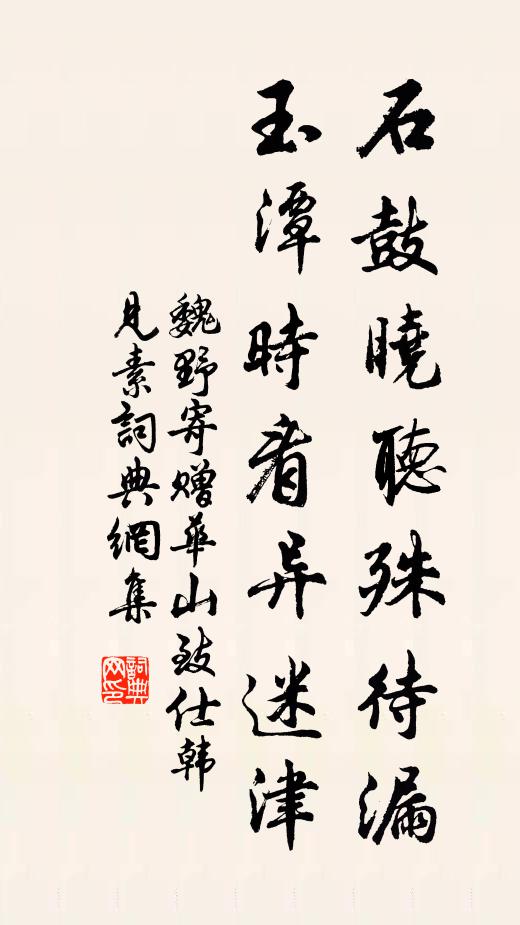 石鼓曉聽殊待漏
玉潭時看异迷津
魏野寄贈華山致仕韓
見素詞典網集
詞典网印